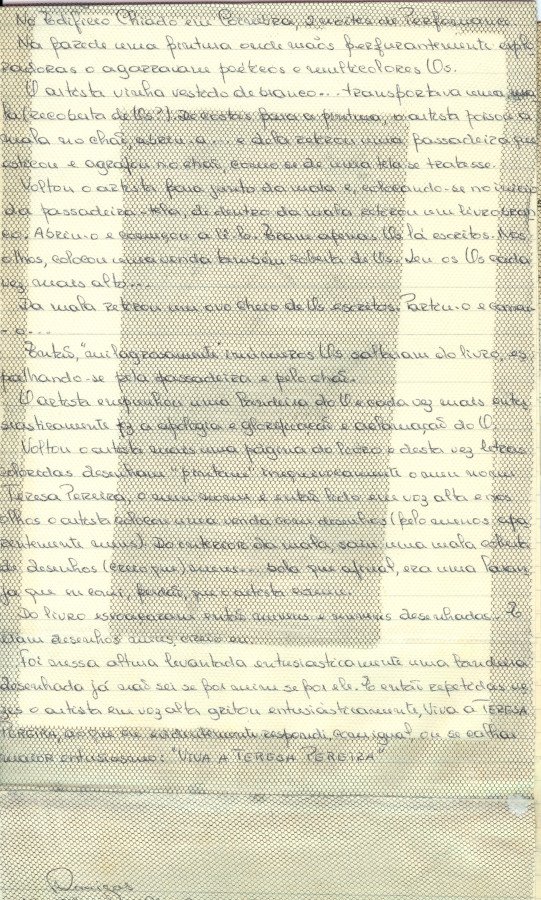 No Edifício Chiado em Coimbra, 2 noites de Performance
Na parede uma pintura onde mãos perfurantemente explo
radoras o agarravam poéticos e multicolores Os.
O artista vinha vestido de branco... transportava uma ma
la (recoberta de Os?). De costas para a pintura, o artista pousou a
mala no chão, abriu-a... e dela retirou uma passadeira que
esticou e agrafou no chão, como se de uma tela se tratasse.
Voltou o artista para junto da mala e, colocando-se no início
da passadeira-tela, de dentro da mala retirou um livro bran
co. Abriu-o e começou a lê-lo. Eram apenas Os lá escritos. Nos
olhos, colocou uma venda também coberta de Os. Leu os Os cada
vez mais alto...
Da mala retirou um ovo cheio de Os escritos. Partiu-o e comeu
-o...
Então, "milagrosamente" inúmeros Os saltaram do livro, es
palhando-se pela passadeira e pelo chão.
O artista empunhou uma bandeira do O e cada vez mais entu
siasticamente fez a apologia e glorificação e aclamação do O.
Voltou o artista mais uma página do livro e desta vez letras
coloridas desenham "pintam" inequivocamente o meu nome
Teresa Pereira, o meu nome é então lido em voz alta e nos
olhos o artista colocou uma venda com desenhos (pelo menos, apa
rentemente meus). Do interior da mala, saiu uma mala coberta
de desenhos (creio que) meus... só que afinal, era uma laran
ja que eu comi, perdão, que o artista comeu.
Do livro evaporaram então desenhadas.. E
eram desenhos meus, creio eu.
Foi nessa altura levantada entusiasticamente uma bandeira
desenhada já não sei se por mim se por ele. E então repetidas ve
zes o artista em voz alta gritou entusiasticamente, VIVA A TERESA
PEREIRA, ao que eu evidentemente respondi, com igual, ou se calhar
maior entusiasmo: "VIVA A TERESA PEREIRA"